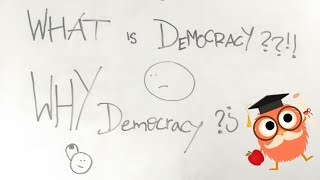 WHAT IS DEMOCRACY ??!!
WHY Democracy ??